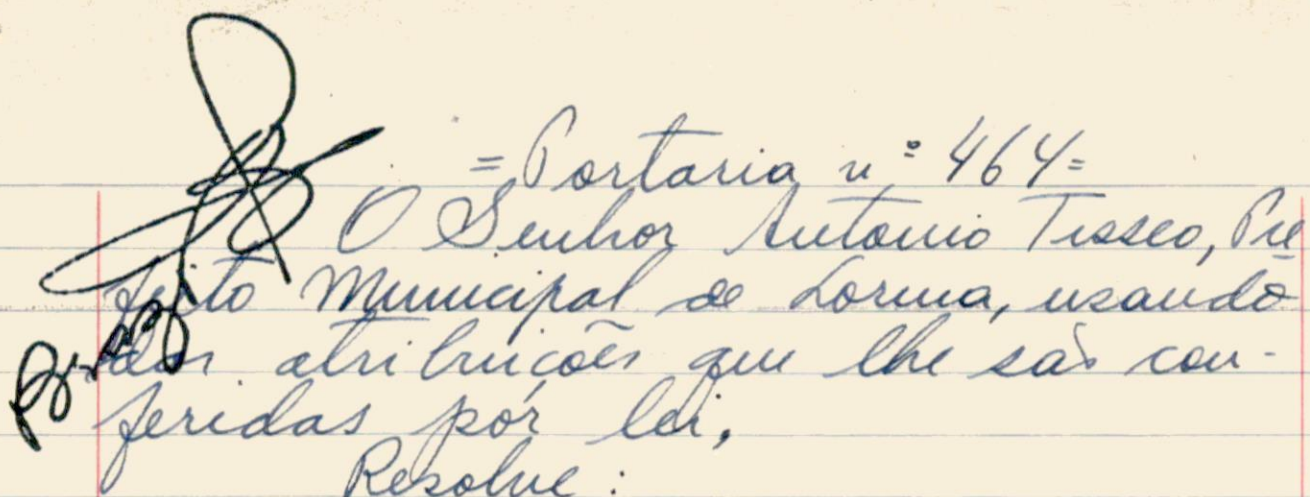 = Portaria nº 464 =
O Senhor Antonio Tisseo, Pre
feito Municipal de Lorena, usando
das atribuições que lhe são con-
feridas por lei,
Resolve: